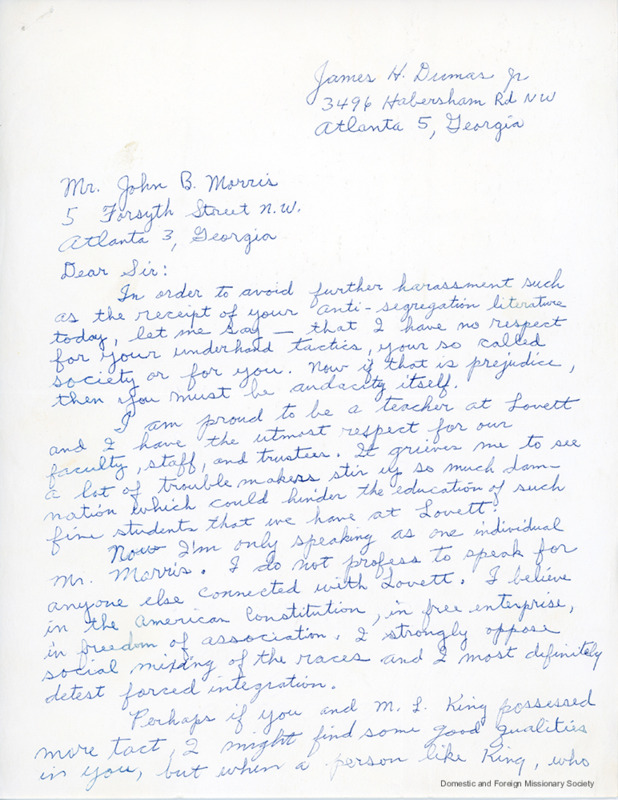 James H. Dumas Jr
3496 Habersham Rd NW
Atlanta 5, Georgia
Mr. John B. Morris
5 Forsyth Street N.W.
Atlanta 3, Georgia
Dear Sir:
In order to avoid further harassment such
as the receipt of your anti-segregation literature
today, let me say — that I have no respect
for your underhand tactics, your so called
society or for you. Now if that is prejudice,
then you must be audacity itself.
I am proud to be a teacher at Lovett
and I have the utmost respect for our
faculty, staff, and trustees. It grieves me to see
a lot of trouble makers stir up so much dam-
nation which could hinder the education of such
fine students that we have at Lovett.
Now I'm only speaking as one individual
Mr. Morris. I do not profess to speak for
anyone else connected with Lovett. I believe
in the American Constitution, in free enterprise,
in freedom of association. I strongly oppose
social mixing of the races and I most definitely
detest forced integration.
Perhaps if you and M. L. King possessed
more tact, I might find some good qualities
in you, but when a person like King, who
Domestic and Foreign Missionary Society